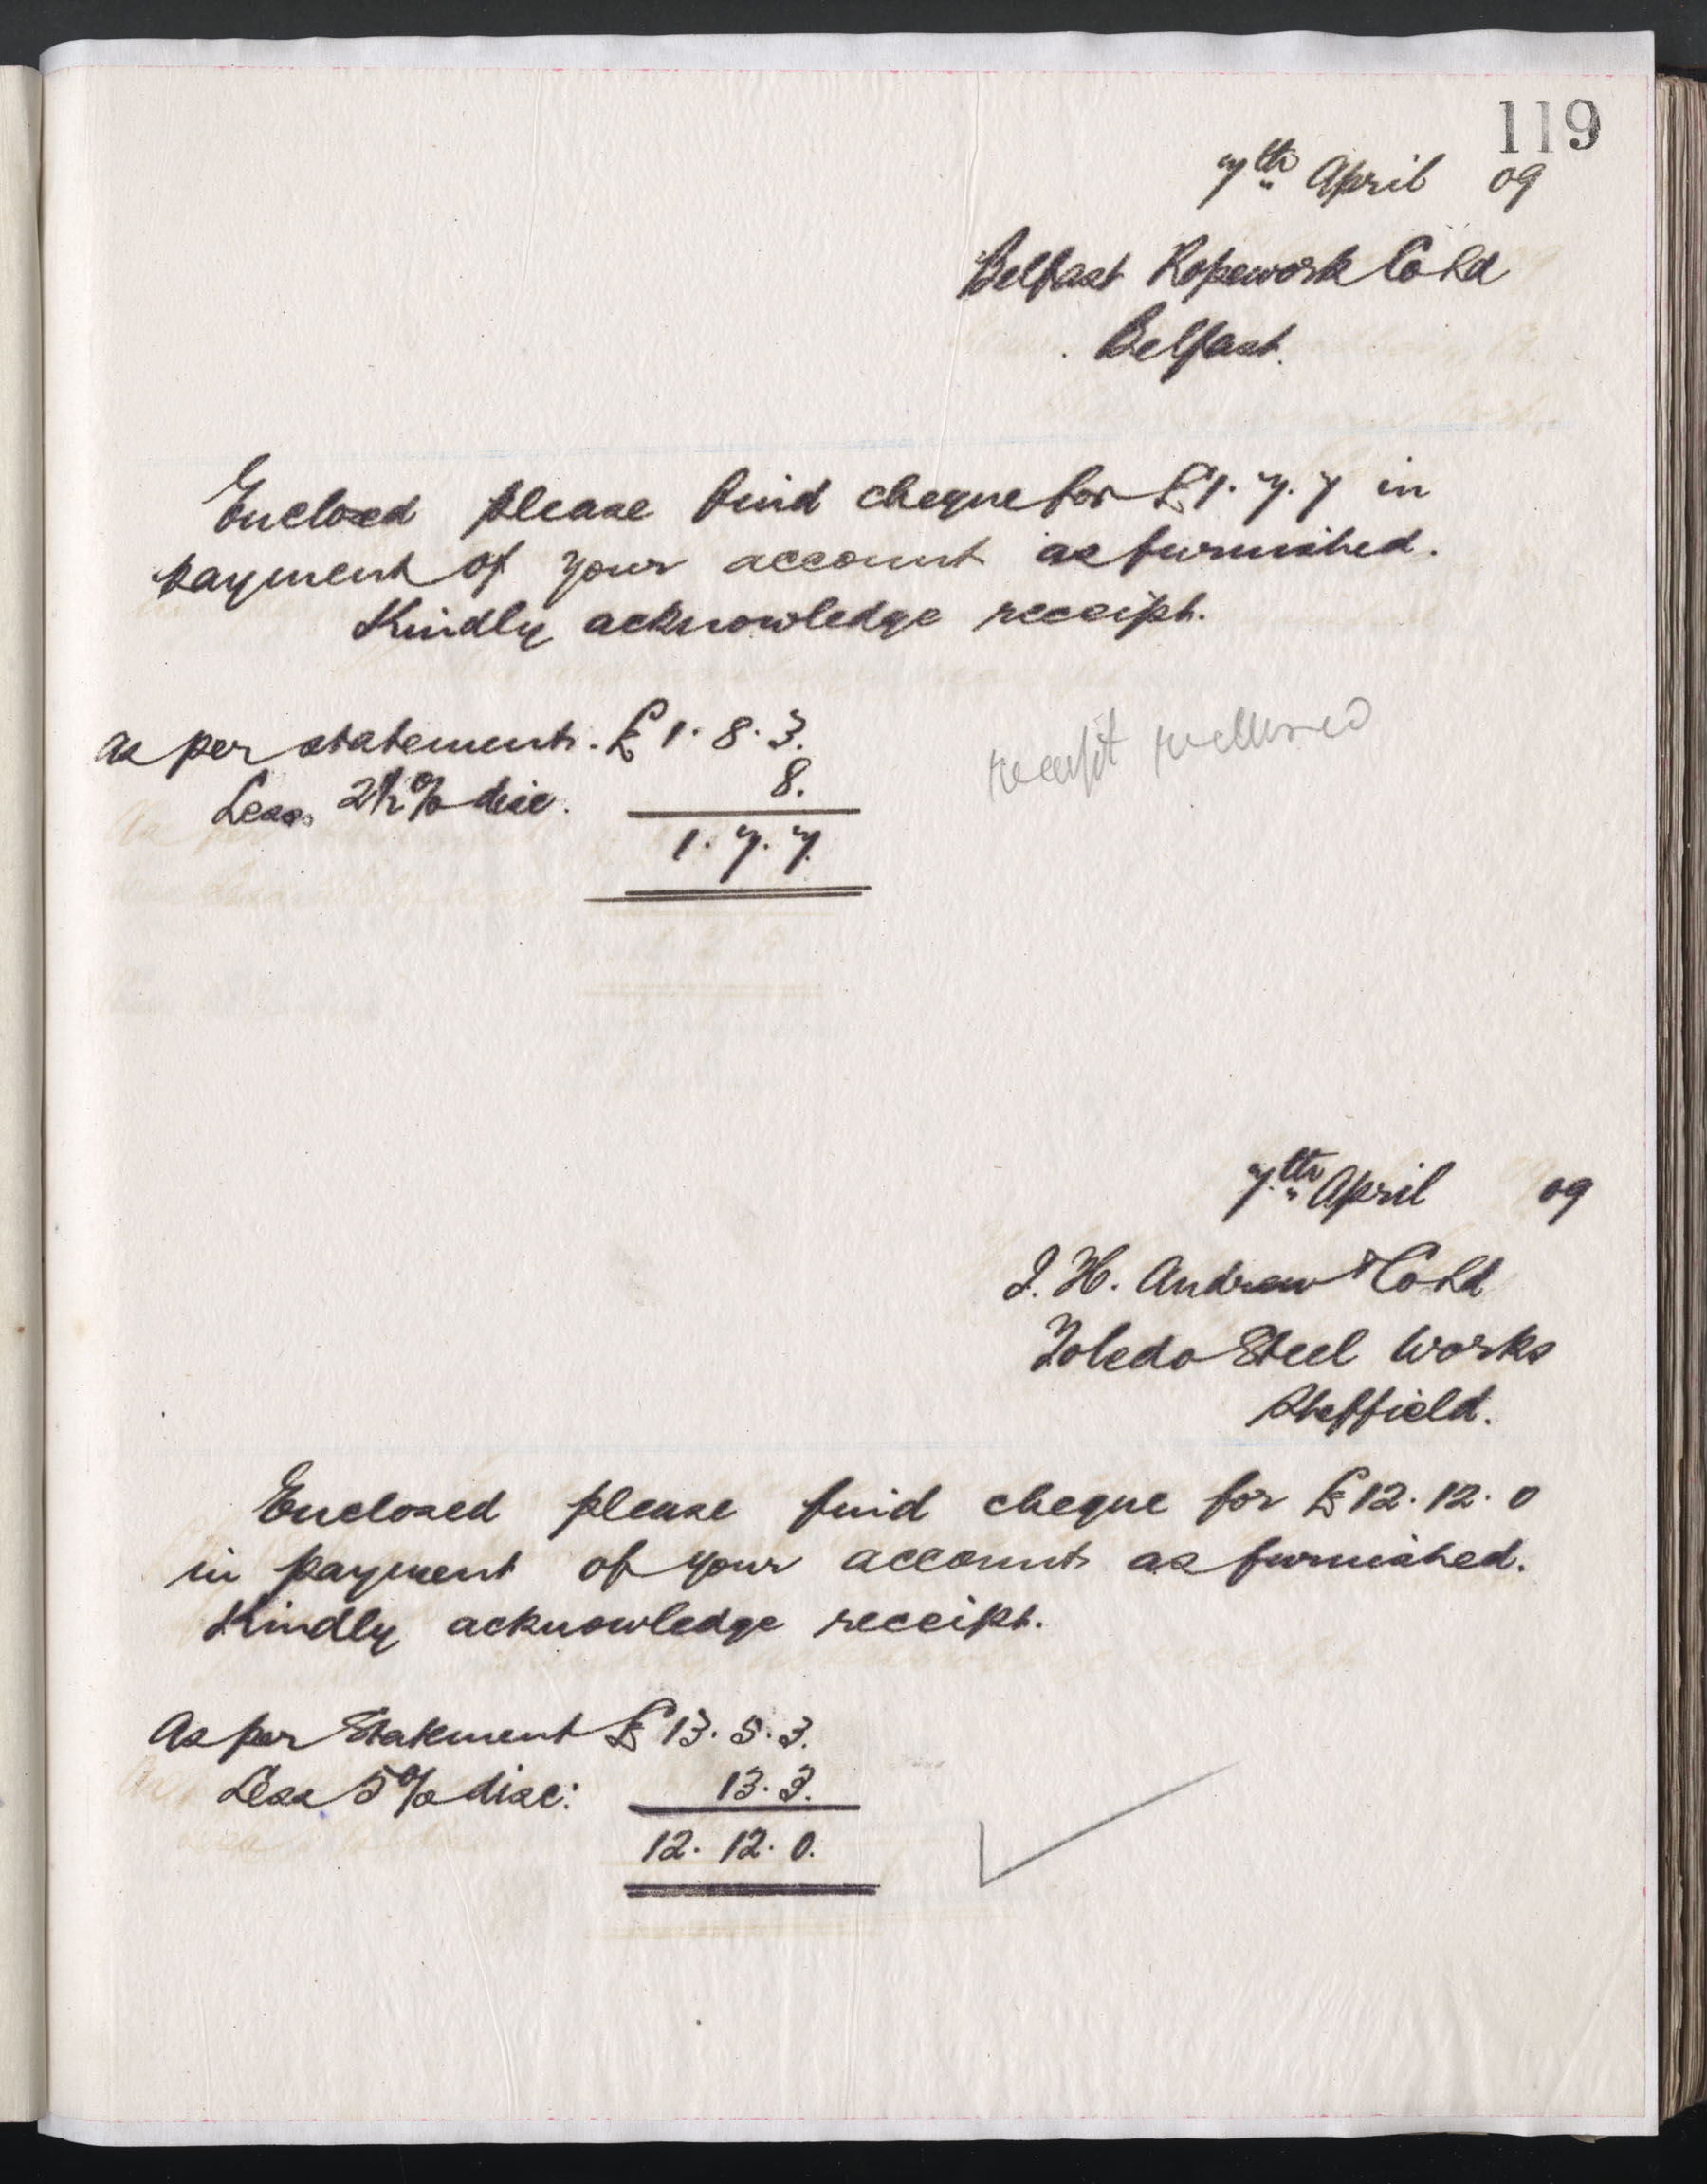 119
7th April 09
Belfast Ropework Co Ld
Belfast.
Enclosed please find cheque for £1.7.7 in
payment of your account as furnished.
Kindly acknowledge receipt.
As per statement. £1.8.3.
Less 2½% disc. 8.
1.7.7.
receipt returned
7th April 09
J. H. Andrew & Co Ld
Toledo Steel Works
Sheffield.
Enclosed please find cheque for £12.12.0
in payment of your account as furnished.
Kindly acknowledge receipt.
As per Statement £13.5.3.
Less 5% disc: 13.3.
12.12.0.